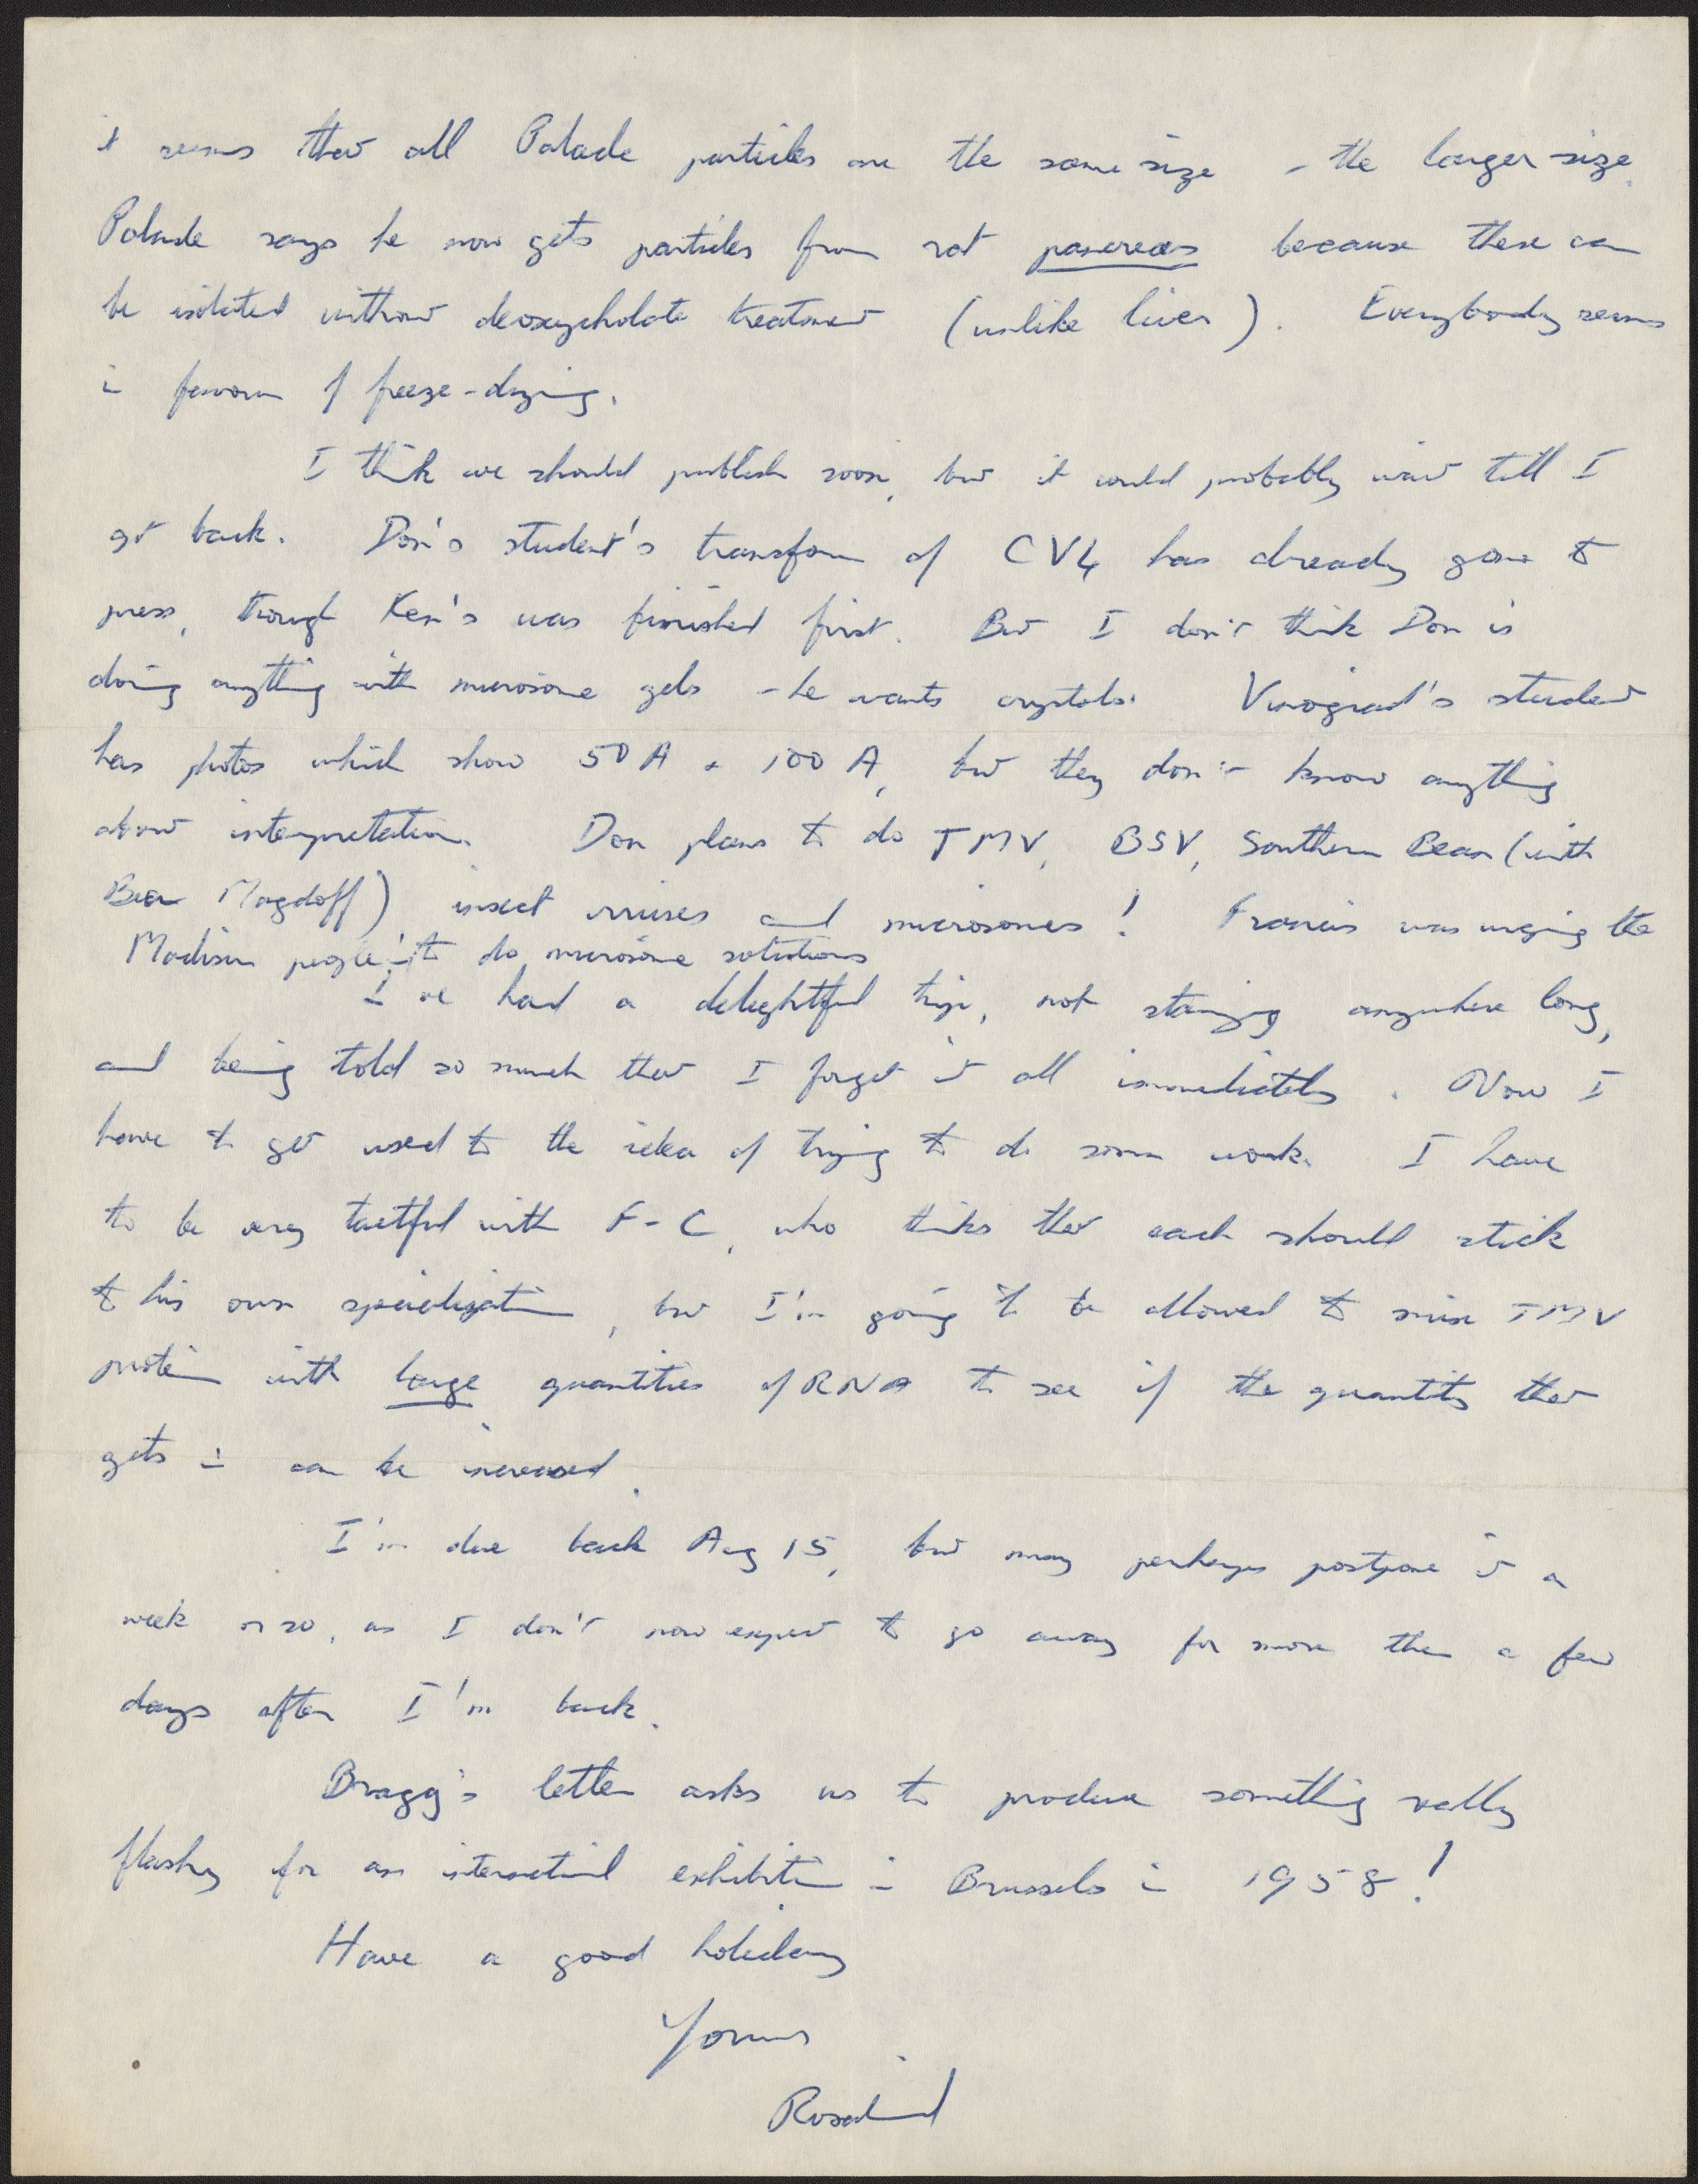 it seems that all Palade particles are the same size - the larger size.
Palade says he now gets particles from rat pancreas because these can
be isolated without deoxycholate treatment (unlike liver). Everybody seems
in favour of freeze-drying.
I think we should publish soon, but it could probably wait till I
get back. Don's student's transform of CV4 has already gone to
press, though Ken's was finished first. But I don't think Don is
doing anything with microsome gels - he wants crystals. Vinograd's student
has photos which show 50 A & 100 A, but they don't know anything
about interpretation. Don plans to do TMV, BSV, Southern Bean (with
Bea Magdoff) insect viruses and microsomes! Francis was urging the
Madison people to do microsome solutions
I've had a delightful trip, not staying anywhere long,
and being told so much that I forget it all immediately. Now I
have to get used to the idea of trying to do some work. I have
to be very tactful with F-C, who thinks that each should stick
to his own specialization, but I'm going to be allowed to mix TMV
protein with large quantities of RNA to see if the quantity that
gets in can be increased.
I'm due back Aug 15, but may perhaps postpone it a
week or so, as I don't now expect to go away for more than a few
days after I'm back.
Bragg's letter asks us to produce something really
flashy for an international exhibition in Brussels in 1958!
Have a good holiday
Yours
Rosalind